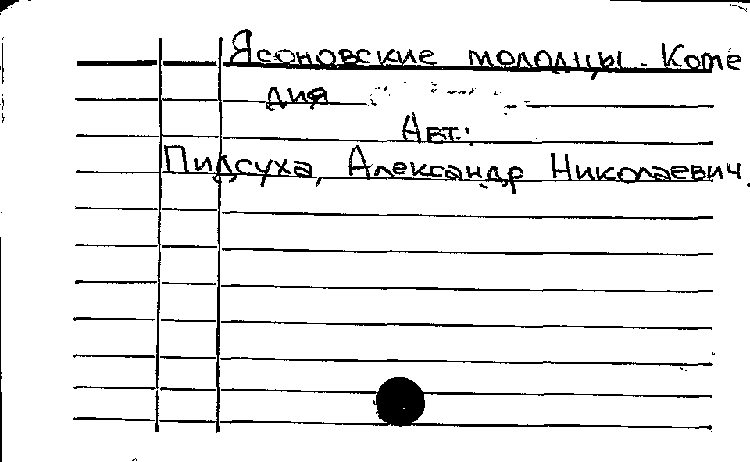 Ясоновские молодцы. Коме
дия
Авт.:
Пидсуха, Александр Николаевич.